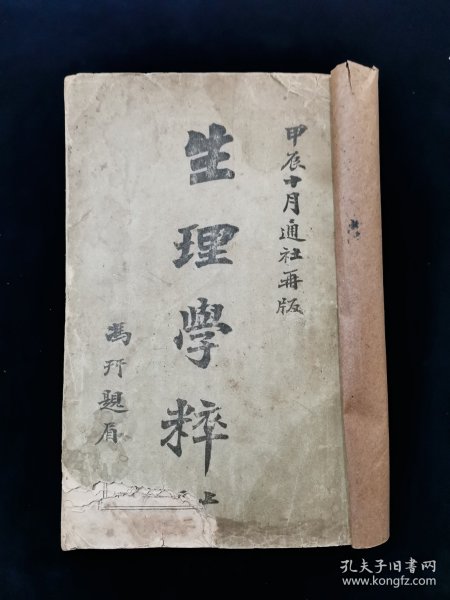 甲辰十月通社再版
生理學粹
上
馮
題眉
孔夫子旧书网
www.kongfz.com